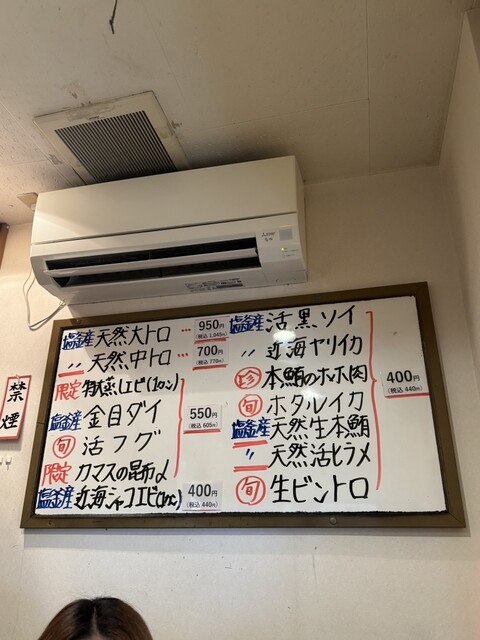 塩釜産 天然大トロ … 950円 (税込 1,045円)
〃 天然中トロ … 700円 (税込 770円)
限定 特大蒸しエビ(1コ)
塩釜産 金目ダイ
旬 活フグ
限定 カマスの昆布〆
550円 (税込 605円)
塩釜産 近海シャコエビ(1コ) 400円 (税込 440円)
塩釜産 活黒ソイ
〃 近海ヤリイカ
珍 本鮪のホホ肉
旬 ホタルイカ
塩釜産 天然生本鮪
〃 天然活ヒラメ
旬 生ビントロ
400円 (税込 440円)
禁煙